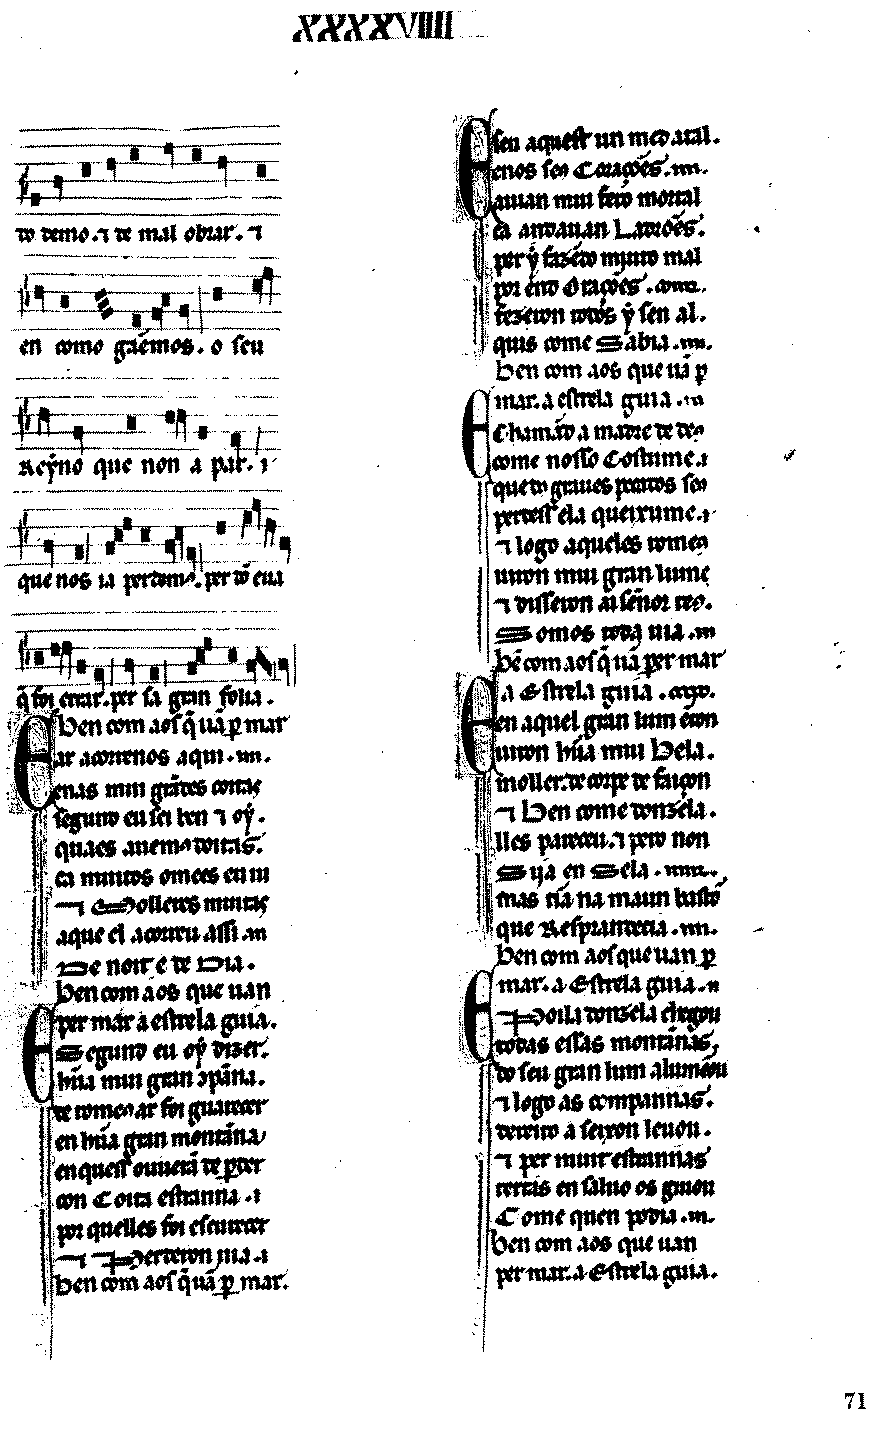 XXXXVIIII
to demo. ⁊ de mal obrar. ⁊
en como gãemos. o seu
Reẏno que non a par. ⁊
que nos ia perdemos. per dõ eua
q̃ foi errar. per sa gran folia.
Ben com aos q̃ uã p mar
Ar acorrenos aqui.
Enas mui grãdes coitas
segund eu sei ben ⁊ oẏ.
quaes auemos doitas.
ca muitos omees eu ui
⁊ Molleres muitas
a que el acorreu assi.
De noit e de Dia.
Ben com aos que uan
per mar a estrela guia.
E Segund eu oẏ dizer.
hũa mui gran cõpãna.
de romeos ar foi guarecer
en hũa gran montãna
en quess ouuerã de perder
con Coita estranna.
por quelles foi escurecer
⁊ Perderon uia.
Ben com aos q̃ uã p mar.
E sen aquest un medo atal.
enos seos Corações.
auian mui fero mortal
ca andauan Ladrões.
per ẏ fazẽdo muito mal
por end Orações.
fezeron todos ẏ sen al.
quis come Sabia.
Ben com aos que uã p
mar. a estrela guia.
E Chamãdo a madre de deos
come nosso Costume.
que dos graues peccados seos
perdess ela queixume.
⁊ logo aqueles romeos
uiron mui gran lume
⁊ disseron ai señor teos.
Somos toda uia.
Bẽ com aos q̃ uã per mar
a Estrela guia.
E en aquel gran lum entõ
uiron hũa mui Bela.
moller. de corpo de faiçon
⁊ Ben come donzela.
lles pareceu. ⁊ pero non
Sija en Sela.
mas tĩia na maun bastõ
que Resprandecia.
Ben com aos que uan p
mar. a Estrela guia.
E Poila donzela chegou
todas essas montãnas,
do seu gran lum alumẽou
⁊ logo as compannas.
dereito a seixon leuou.
⁊ per muit estrannas
terras en saluo os guiou
Come quen podia.
Ben com aos que uan
per mar. a Estrela guia.
71